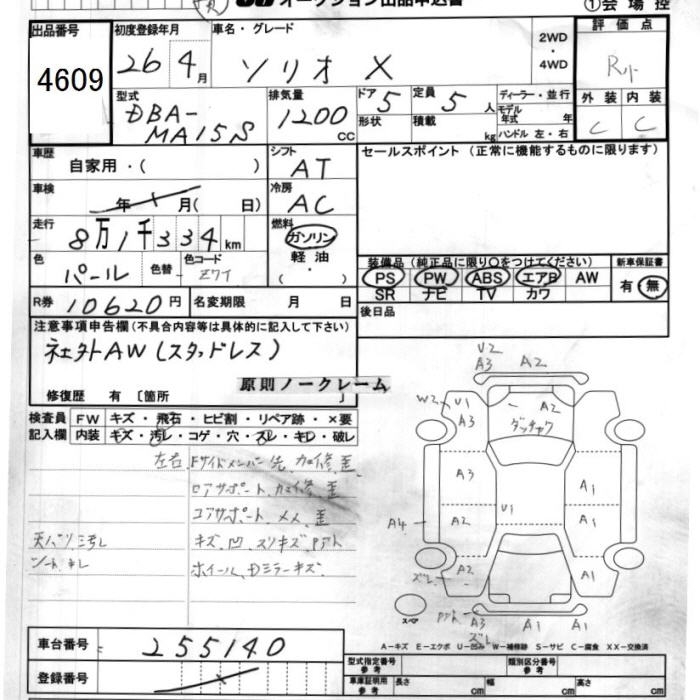 オークション出品申込書 ①会場控
出品番号 初度登録年月 車名・グレード 2WD・4WD 評価点
4609 26 4月 ソリオ X R小
型式 排気量 ドア 定員 ディーラー・並行 外装 内装
DBA- 1200 CC 5 5人 モデル年式 年 C C
MA15S 形状 積載 kg ハンドル 左・右
車歴 シフト セールスポイント (正常に機能するものに限ります)
自家用・( ) AT
車検 冷房
年 月( 日) AC
走行 燃料
8万1千334km ガソリン
色 色替 色コード 軽油 装備品 (純正品に限り○をつけてください) 新車保証書
パール Z7T ( ・ ) PS PW ABS エアB AW 有・無
SR ナビ TV カワ
R券 10620円 名変期限 月 日 後日品
注意事項申告欄(不具合内容等は具体的に記入して下さい)
社外AW(スタッドレス)
原則ノークレーム
修復歴 有 〔箇所 〕
検査員 FW キズ・飛石・ヒビ割・リペア跡・×要
記入欄 内装 キズ・汚レ・コゲ・穴・スレ・キレ・破レ
左右Fサイドメンバー先、カエ修、歪
ロアサポート、カエ修、歪
コアサポート、メメ、歪
天バリ汚レ キズ、凹、スリキズ、Pアト
シートキレ ホイール、Dミラーキズ
V2
A3 A2
W2 U1 A2
A3 ダッチャク
A3 A1
U1
A4 A2 A1
ズレ A2 A1
スペア Pアト A3 A1 A1
ズレ
A-キズ E-エクボ U-凹み W-補修跡 S-サビ C-腐食 XX-交換済
車台番号 255140
登録番号
型式指定番号 参考 類別区分番号 参考
車庫証明用 参考 長さ cm 幅 cm 高さ cm